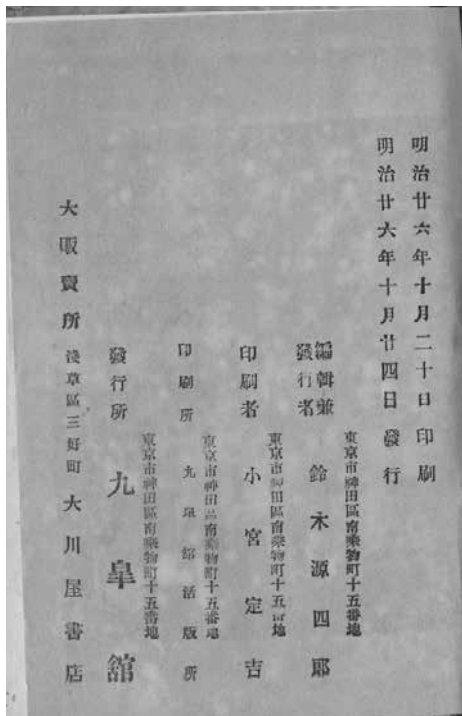 明治廿六年十月二十日印刷
明治廿六年十月廿四日發行
東京市神田區南乘物町十五番地
編輯兼發行者 鈴木源四郎
東京市神田區南乘物町十五番地
印刷者 小宮定吉
東京市神田區南乘物町十五番地
印刷所 九皐館活版所
東京市神田區南乘物町十五番地
發行所 九皐舘
大販賣所 淺草區三好町 大川屋書店